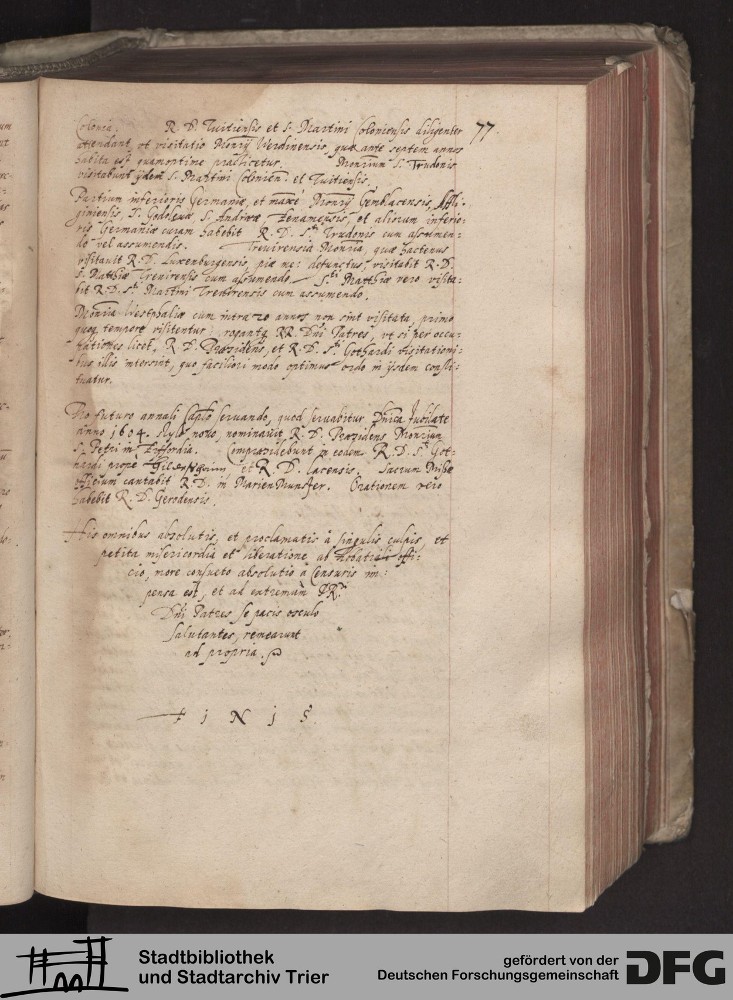 Colonia. R. D. Tuitiensis et S. Martini Coloniensis diligenter 77.
attendant, ut visitatio Monrij Werdinensis, quae ante septem annos
habita est quamprimè practicetur. Monrium S. Trudonis
visitabunt ijdem S. Martini Colonien: et Tuitiensis.
Partium inferioris Germaniae, et maxè Monrij Gemblacensis, Affli:
giniensis, S. Godeleuae S. Andreae Zenamensis, et aliorum inferio:
ris Germaniae curam habebit R. D. S.ti Trudonis cum assumen:
do vel assumendis. Trevirensia Monria, quae hactenus
visitauit R. D. Luxemburgensis, piae me: defunctus, visitabit R. D.
S. Matthiae Trevirensis cum assumendo. S.ti Matthiae vero visita:
bit R. D. S.ti Martini Trevirensis cum assumendo.
Monria Westphaliae cum intra 20 annos non sint visitata, primo
quoq tempore visitentur: rogantq RR. Dni Patres, ut si per occu:
pationes licet, R. D. Praesidens, et R. D. S.ti Gothardi visitationi:
bus illis intersint, quo faciliori modo optimus ordo in ijsdem consti:
tuatur.
Pro futuro annali Caplo seruando, quod seruabitur Dnica Jubilate
anno 1604. stylo nouo, nominauit R. D. Praesidens Monrium
S. Petri in Erffordia. Compraesidebunt in eodem R. D. S.ti Got:
hardi prope Hildesheim et R. D. Lacensis. Sacrum Missae
officium cantabit R. D. in MarienMunster. Orationem vero
habebit R. D. Gerodensis.
His omnibus absolutis, et proclamatis à singulis culpis, et
petita misericordia et liberatione ab Abbatiali offi:
cio, more consueto absolutio à Censuris im:
pensa est, et ad extremum RR.
Dni Patres se pacis osculo
salutantes, remearunt
ad propria.
F i N i S.
Stadtbibliothek
und Stadtarchiv Trier
gefördert von der
Deutschen Forschungsgemeinschaft
DFG